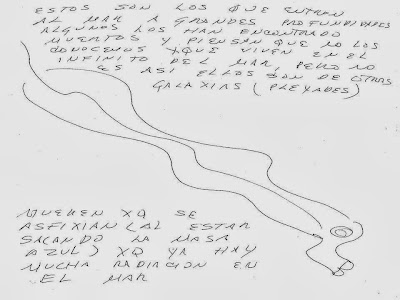 ESTOS SON LOS QUE ENTRAN
AL MAR A GRANDES PROFUNDIDADES
ALGUNOS LOS HAN ENCONTRADO
MUERTOS Y PIENSAN QUE NO LOS
CONOCEMOS XQUE VIVEN EN EL
INFINITO DEL MAR, PERO NO
ES ASI ELLOS SON DE OTRAS
GALAXIAS (PLEYADES)
MUEREN XQ SE
ASFIXIAN (AL ESTAR
SACANDO LA MASA
AZUL) XQ YA HAY
MUCHA RADIACION EN
EL MAR